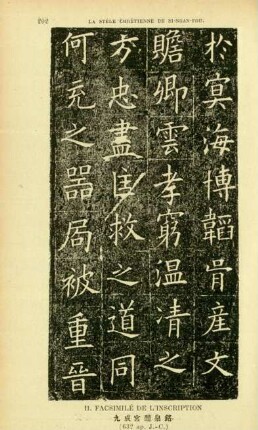 202 LA STÈLE CHRÉTIENNE DE SI-NGAN-FOU.
於冥海博韜骨産文
贍卿雲孝窮温清之
方忠盡匡救之道同
何充之器局被重晉
II. FACSIMILÉ DE L'INSCRIPTION
九成宮醴泉銘
(632 ap. J.-C.)